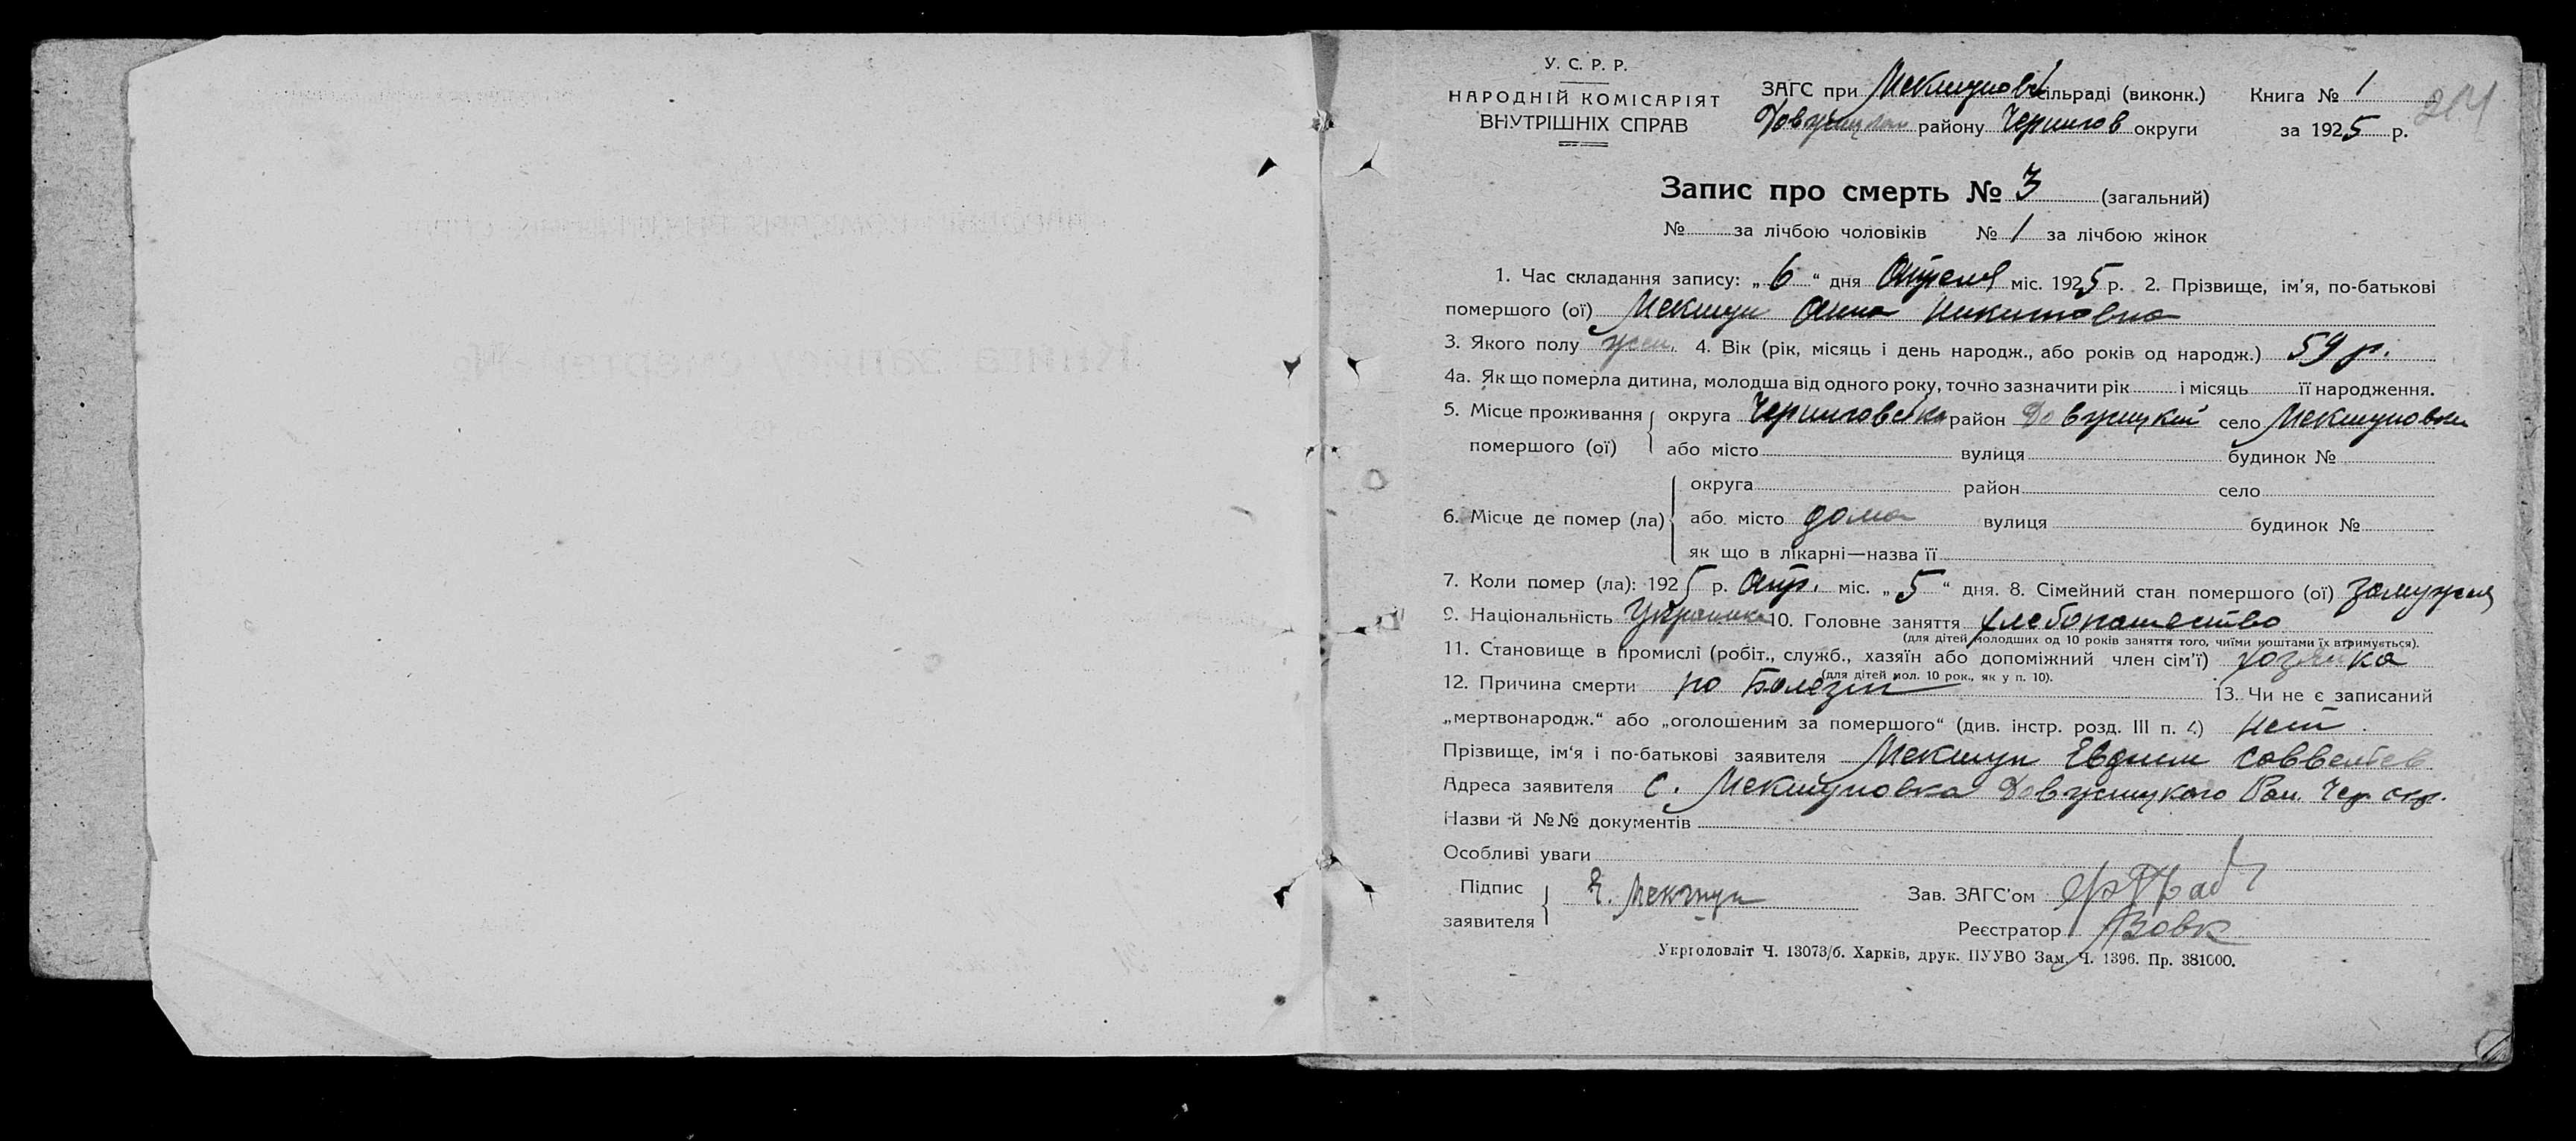 У. С. Р. Р.
НАРОДНІЙ КОМІСАРІЯТ
ВНУТРІШНІХ СПРАВ
ЗАГС при Мекшунов сільраді (виконк.)
району Чернигов округи
Книга № 1
за 1925 р.
Запис про смерть № 3 (загальний)
№ за лічбою чоловіків № 1 за лічбою жінок
1. Час складання запису: „6“ дня Апреля міс. 1925 р. 2. Прізвище, ім'я, по-батькові
помершого (ої) Мекшун Анна Никитовна
3. Якого полу жен. 4. Вік (рік, місяць і день народж., або років од народж.) 59 р.
4а. Як що померла дитина, молодша від одного року, точно зазначити рік і місяць її народження.
5. Місце проживання округа Черниговська район Довжицкий село Мекшуновка
помершого (ої) або місто вулиця будинок №
округа район село
6. Місце де помер (ла) або місто дома вулиця будинок №
як що в лікарні—назва її
7. Коли помер (ла): 1925 р. Апр. міс. „5“ дня. 8. Сімейний стан помершого (ої) замужня
9. Національність Украинка 10. Головне заняття хлебопашество
(для дітей молодших од 10 років заняття того, чиїми коштами їх втримується).
11. Становище в промислі (робіт., служб., хазяїн або допоміжний член сім'ї) хозяйка
(для дітей мол. 10 рок., як у п. 10).
12. Причина смерти по Болезни 13. Чи не є записаний
„мертвонародж.“ або „оголошеним за помершого“ (див. інстр. розд. III п. 4) нет.
Прізвище, ім'я і по-батькові заявителя Мекшун Евдоким
Адреса заявителя с. Мекшуновка Довжицкого Рай. Чер. окр.
Назви й №№ документів
Особливі уваги
Підпис
заявителя
Мекшун
Зав. ЗАГС'ом
Реєстратор Вовк
Укрголовліт Ч. 13073/б. Харків, друк. ПУУВО Зам. Ч. 1396. Пр. 381000.